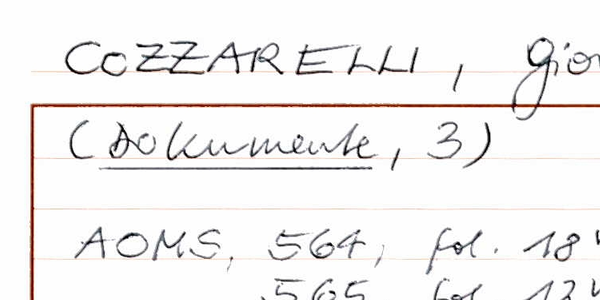 COZZARELLI, Gio
(Dokumente, 3)
AOMS, 564, fol. 18v
565 fol 12v